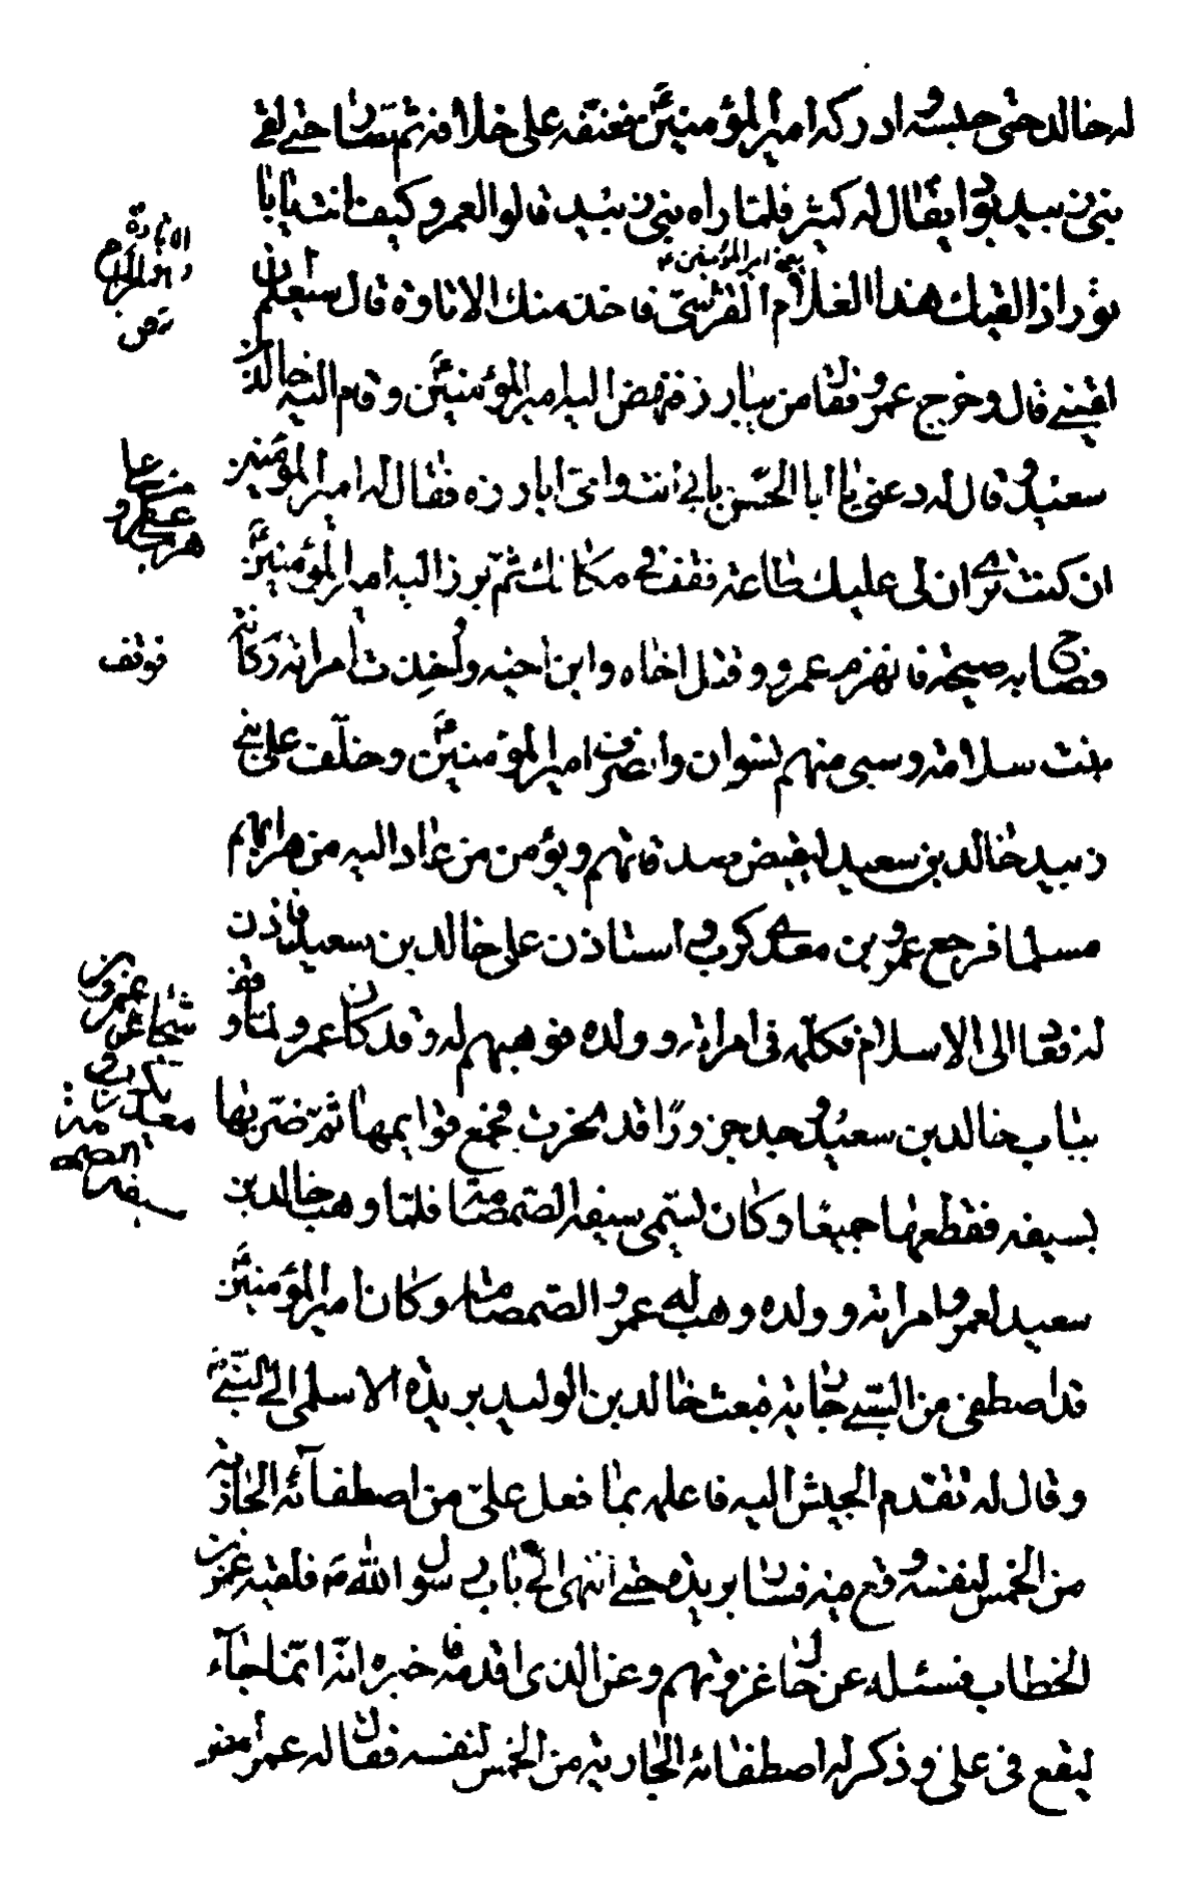 له خالد حتى حبسه وادركه امير المؤمنين ع فعنفه على خلافه ثم سار حتى لقى
بنى زبيد بواد يقال له كثير فلما راه بنى زبيد قالوا لعمرو كيف انت يا ابا
ثور اذا لقيك هذا الغلام القرشى فاخذ منك الاتاوة قال سيعلم ان
يعنى امير المؤمنين ع
لقينى قال وخرج عمرو فقال من يبارز فنهض اليه امير المؤمنين ع وقام اليه خالد بن
سعيد وقال له دعنى يا ابا الحسن بابى انت وامى ابارزه فقال له امير المؤمنين
ان كنت ترى ان لى عليك طاعة فقف فى مكانك ثم برز اليه امير المؤمنين ع
فصاح به صيحة فانهزم عمرو وقتل اخاه وابن اخيه واخذت امراته ركانة
بنت سلامة وسبى منهم نسوان وانصرف امير المؤمنين ع وخلف على بنى
زبيد خالد بن سعيد ليقبض صدقاتهم ويؤمن من عاد اليه من هرابهم
مسلما فرجع عمرو بن معدى كرب واستاذن على خالد بن سعيد فاذن
له فعاد الى الاسلام فكلمه فى امراته وولده فوهبهم له وقد كان عمرو لما وقف
بباب خالد بن سعيد وجد جزورا قد نحرت فجمع قوايمها ثم ضربها
بسيفه فقطعها جميعا وكان يسمى سيفه الصمصامة فلما وهب خالد بن
سعيد لعمرو امراته وولده وهب له عمرو الصمصامة وكان امير المؤمنين ع
قد اصطفى من السبى جارية فبعث خالد بن الوليد بريدة الاسلمى الى النبى ص
وقال له تقدم الجيش اليه فاعلمه بما فعل على من اصطفائه الجارية
من الخمس لنفسه وقع فيه فسار بريدة حتى انتهى الى باب رسول الله ص فلقيه عمر بن
الخطاب فسئله عن حال غزوتهم وعن الذى اقدمه فاخبره انه انما جاء
ليقع فى على وذكر له اصطفائه الجارية من الخمس لنفسه فقال له عمر امض
فوقف